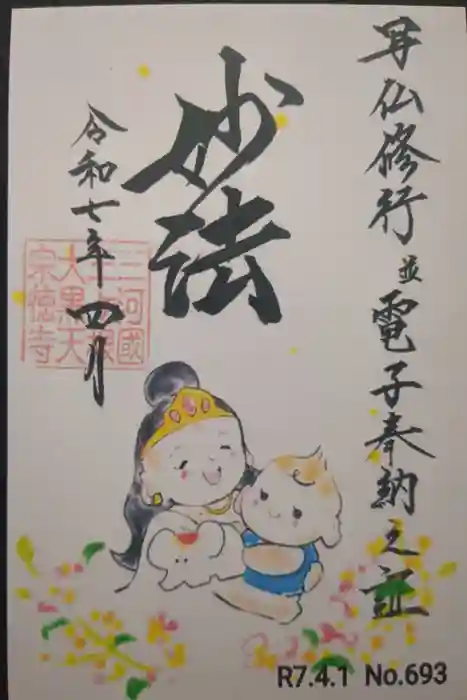 写仏修行並電子奉納之証
妙法
令和七年四月
三河國
大黒天
宗徳寺
R7.4.1 No.693